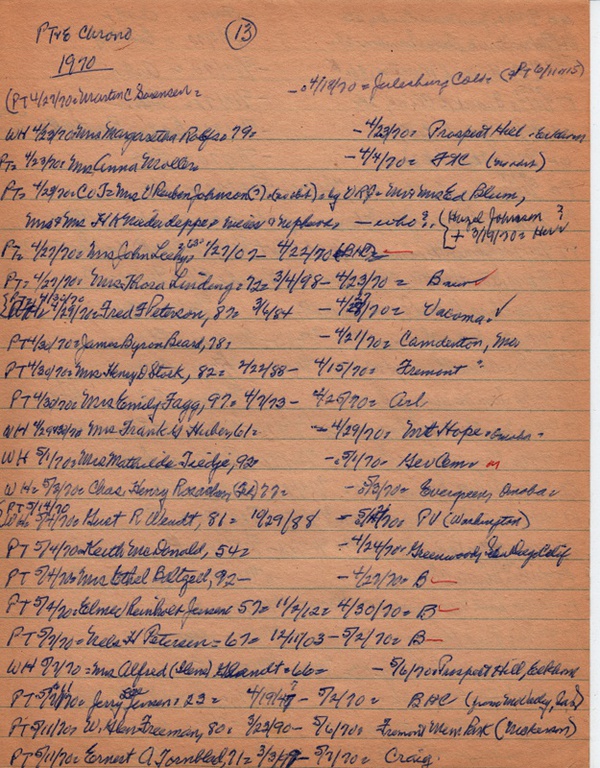 PT & E Chrono (13)
1970
(PT 4/27/70 = Martin C Sorensen = - 4/19/70 = Julesburg Colo = (PT 6/11/15)
WH 4/23/70 = Mrs Margaretha Rolfs = 79 = - 4/23/70 = Prospect Hill - Elkhorn
PT = 4/23/70 = Mrs Anna Moeller - 4/4/70 =
PT = 4/29/70 = C of T = Mrs V Reuben Johnson (?) = by VRJ = Mr & Mrs Ed Blum,
Mr & Mrs H A = nieces & nephews - who? { Hazel Johnson ?
+ 3/19/70 =
PT = 4/27/70 = Mrs John 1/27/07 - 4/22/70 =
PT = 4/27/70 = Mrs Thora Lindeng = 72 = 3/4/98 - 4/23/70 = B
4/29/70 = Fred F Peterson, 87 = 3/6/84 - /70 =
PT 4/30/70 = James Byron Beard, 78 = - 4/21/70 = Camdenton, Mo
PT 4/30/70 = Mrs Henry D Stork, 82 = 2/22/88 - 4/15/70 = Fremont
PT 4/30/70 = Mrs Emily Fagg, 97 = 4/7/73 - 4/25/70 = Arl
WH 4/29 = Mrs Frank G Huber, 61 = - 4/29/70 = Mt Hope = Omaha -
WH 5/1/70 = Mrs Mathilde Tiedje, 92 - 5/1/70 = Ger Cem =
WH = 5/3/70 = Chas. Henry 77 = - 5/3/70 = Evergreen, Omaha
PT 5/14/70
WH 5/ /70 = Gust R Wendt, 81 = 10/29/88 - 5/ /70 = PV (Washington)
PT 5/4/70 = Keith McDonald, 54 = - 4/24/70 = Greenwood, San Diego Calif
PT 5/4/70 = Mrs Ethel Beltzed, 92 - - 4/27/70 = B
PT 5/4/70 = Elmer Reinholt Jensen 57 = 11/2/12 = 4/30/70 = B
PT 5/7/70 = Nels H Petersen = 67 = 12/11/03 - 5/2/70 = B
WH 5/7/70 = Mrs Alfred (Elena) Brandt = 66 = - 5/6/70 = Prospect Hill, Elkhorn
PT 5/ /70 = Jerry Jensen = 23 = 4/19/47 - 5/2/70 = BHC
PT 5/11/70 = W. Glen Freeman, 80 = 3/23/90 - 5/6/70 = Fremont Mem Park (Nickerson)
PT 5/11/70 = Ernest A Tornblad, 71 = 3/3/ - 5/7/70 = Craig.